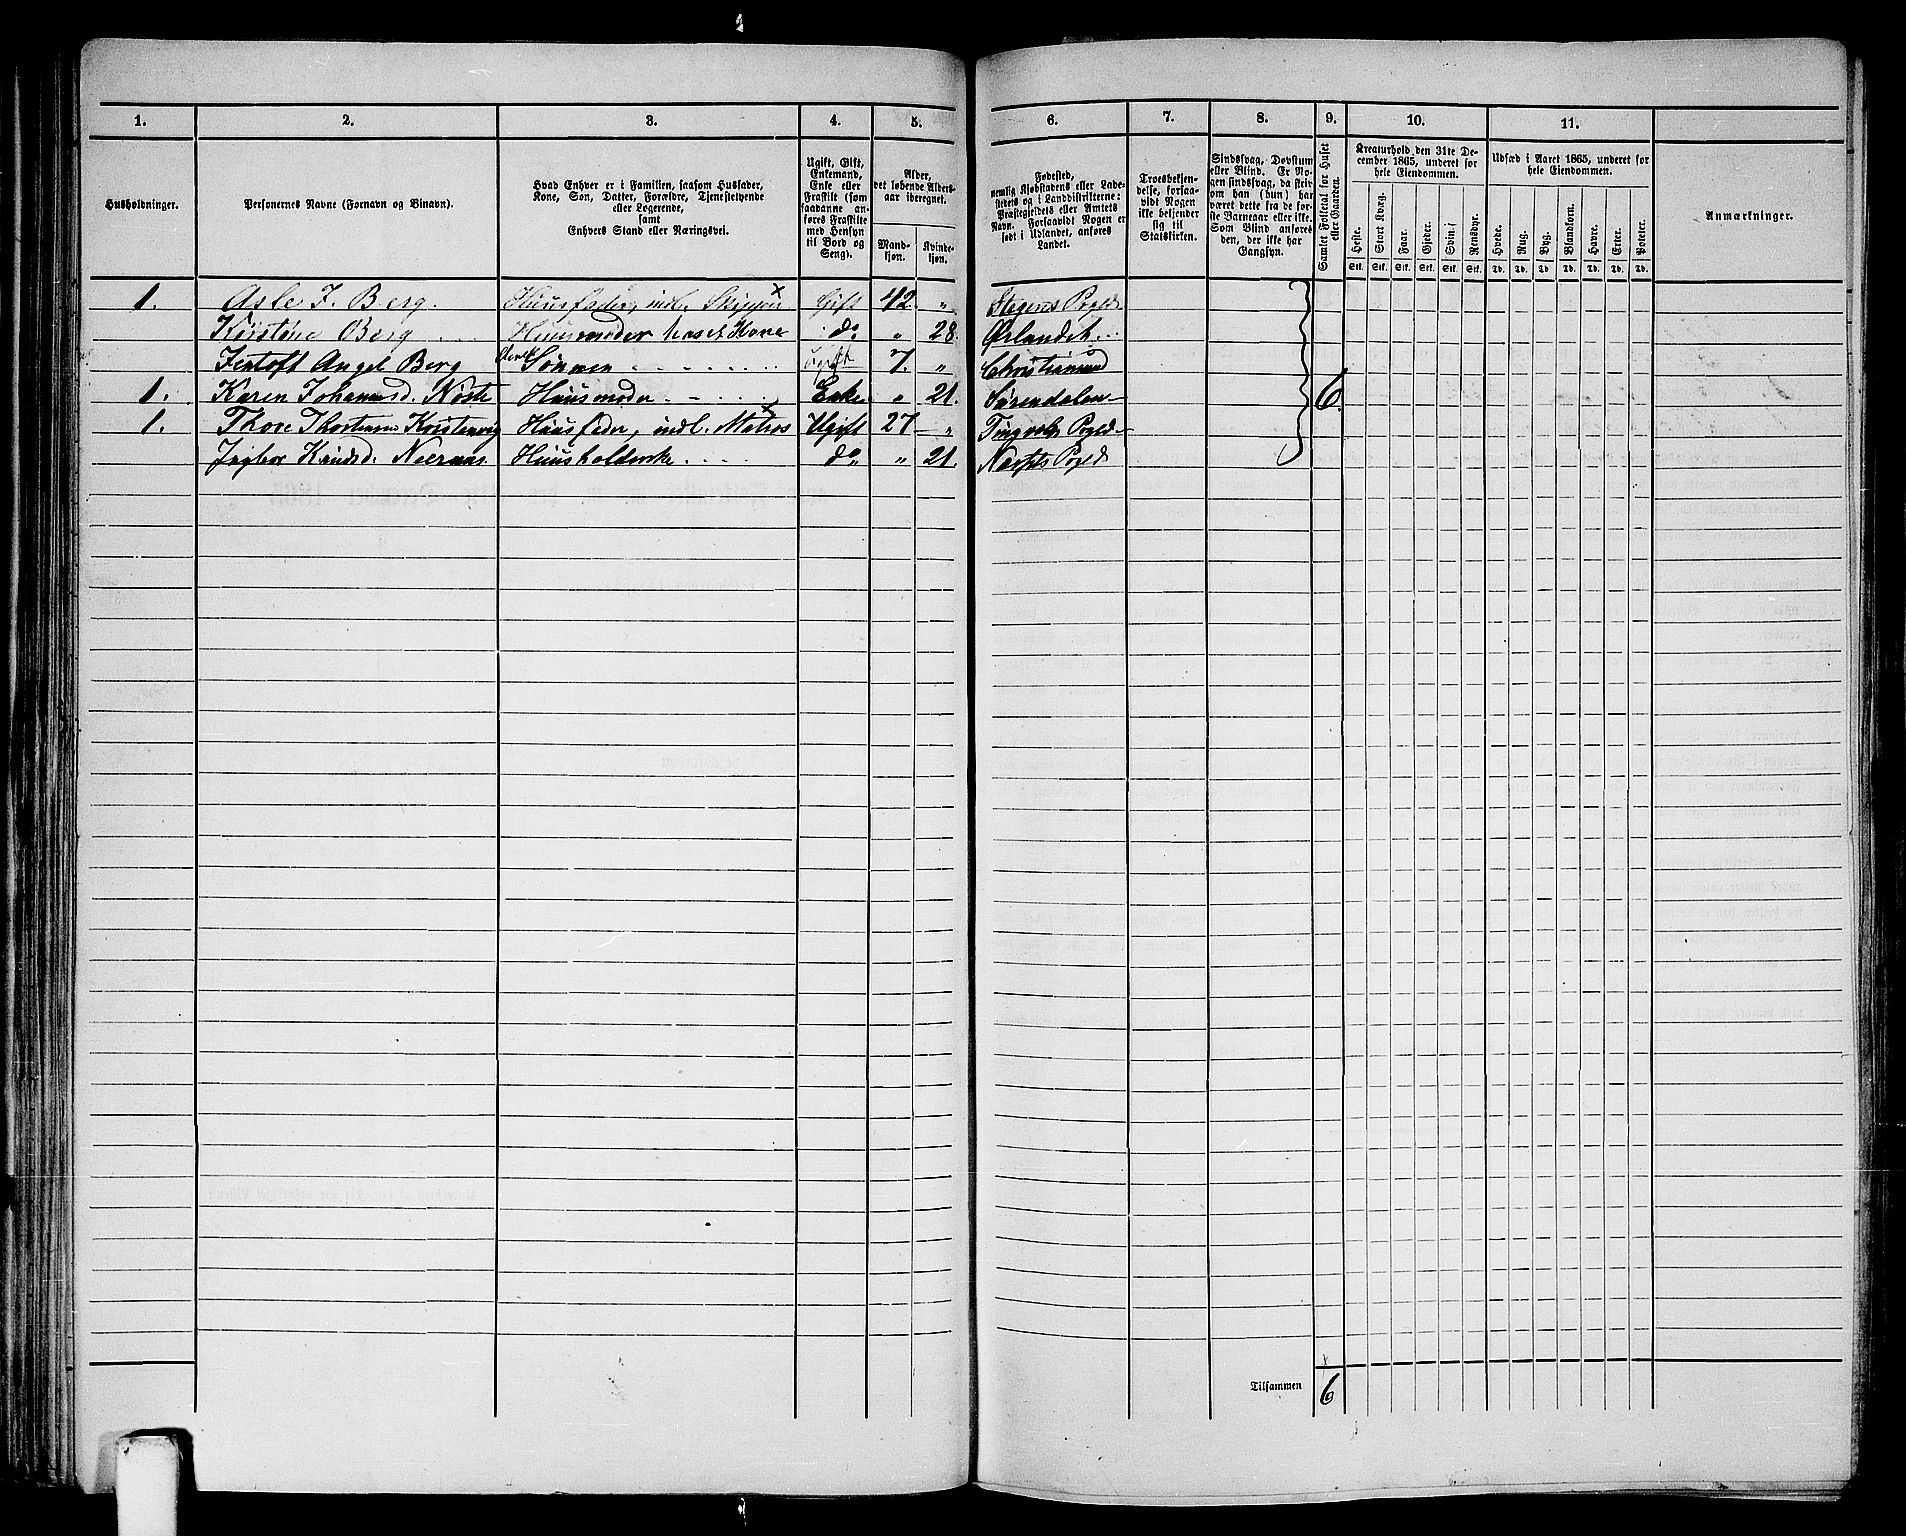 1. 2. 3. 4. 5. 6. 7. 8. 9. 10. 11.
Husholdninger.
Personernes Navne (Fornavn og Binavn).
Hvad Enhver er i Familien, saasom Husfader,
Kone, Søn, Datter, Forældre, Tjenestetyende
eller Logerende,
samt
Enhvers Stand eller Næringsvei.
Ugift, Gift,
Enkemand,
Enke eller
Fraskilt (som
saadanne an-
føres Fraskilte
med Hensyn
til Bord og
Seng).
Alder,
det løbende Alders-
aar iberegnet.
Mand-
kjøn.
Kvinde-
kjøn.
Fødested,
nemlig Kjøbstadens eller Lade-
stedets og i Landdistrikterne:
Præstegjeldets eller Amtets
Navn. Forsaavidt Nogen er
født i Udlandet, anføres
Landet.
Troesbekjen-
delse, forsaa-
vidt Nogen
ikke bekjender
sig til
Statskirken.
Sindssvag, Døvstum
eller Blind. Er No-
gen sindssvag, da skriv
om han (hun) har
været dette fra de før-
ste Barneaar eller ikke.
Som Blind anføres
den, der ikke har
Gangsyn.
Samlet Folketal for Huset
eller Gaarden.
Kreaturhold den 31te De-
cember 1865, underet for
hele Eiendommen.
Heste. Stort Kvæg. Faar. Gjeder. Svin. Rensdyr.
Stk. Stk. Stk. Stk. Stk. Stk.
Udsæd i Aaret 1865, underet for
hele Eiendommen.
Hvede. Rug. Byg. Blandkorn. Havre. Erter. Poteter.
Td. Td. Td. Td. Td. Td. Td.
Anmærkninger.
1. Asle J. Berg. Huusfader, indl. Skipper Gift 42. " Stegens Pgeld
Kirstine Berg Huusmoder hans Kone do " 28. Ørlandet
Jentoft Angel Berg deres Sønnen ugift 7. " Christiansund
1. Karen Johannsd. Nøste Huusmoder Enke " 21. Surendalen 6.
1. Thore Thorstensen Korstenvig Huusfader, indl. Matros Ugift 27 " Tingvolds Pgeld
Ingbor Knudsd. Huusholderske do " 21. Pgeld
Tilsammen 6